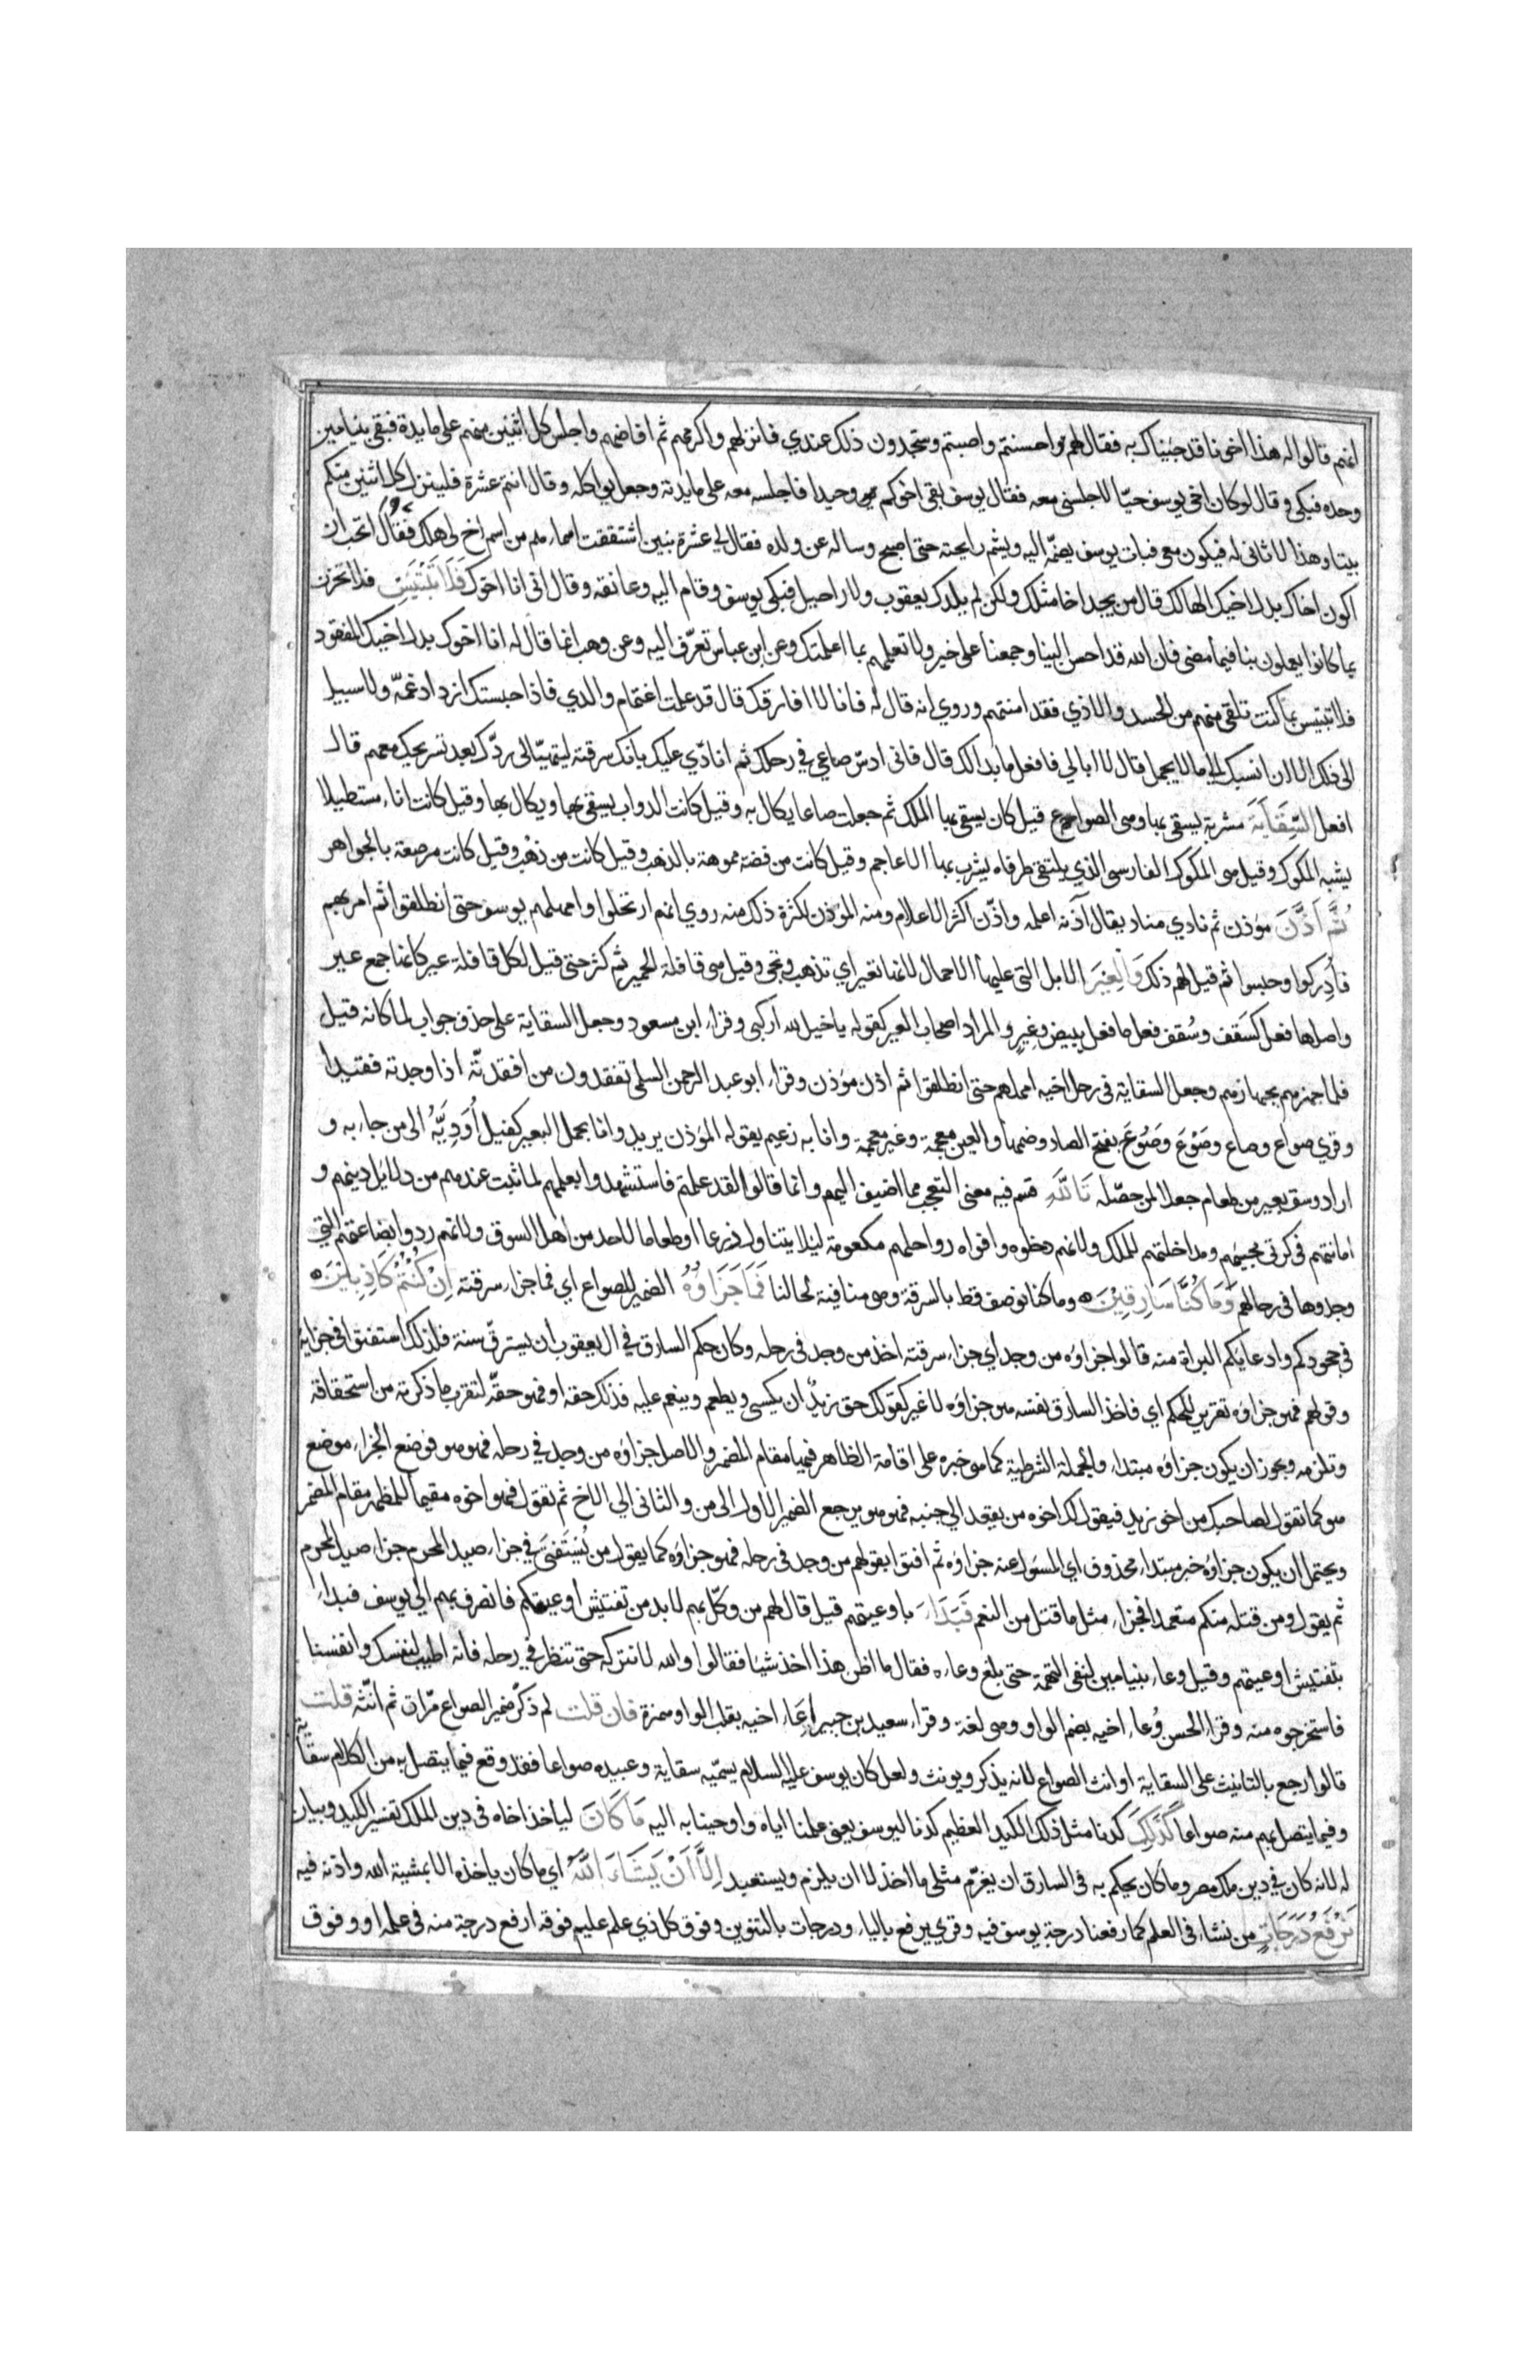 انهم قالوا له هذا اخونا قد جئناك به فقال لهم احسنتم واصبتم وستجدون ذلك عندي فانزلهم واكرمهم ثم اضافهم واجلس كل اثنين منهم على مايدة فبقى بنيامين
وحده فبكى وقال لو كان اخى يوسف حيّا لاجلسنى معه فقال يوسف بقى اخوكم وحيدا فاجلسه معه على مايدته وجعل يواكله وقال انتم عشرة فلينزل كل اثنين منكم
بيتا وهذا لا ثانى له فيكون معى فبات يوسف يضمّه اليه ويشم رايحته حتى اصبح وساله عن ولده فقال لى عشرة بنين اشتققت اسماءهم من اسم اخ لى هلك فقال اتحب ان
اكون اخاك بدل اخيك الهالك قال من يجد اخا مثلك ولكن لم يلدك يعقوب ولا راحيل فبكى يوسف وقام اليه وعانقه وقال انى انا اخوك فَلَا تَبْتَئِسْ فلا تحزن
بما كانوا يعملون بنا فيما مضى فان الله قد احسن الينا وجمعنا على خير ولا تعلمهم بما اعلمتك وعن ابن عباس تعرّف اليه وعن وهب انما قال له انا اخوك بدل اخيك المفقود
فلا تبتئس بما كنت تلقى منهم من الحسد والاذي فقد امنتهم وروي انه قال له فانا لا افارقك قال قد علمت اغتمام والدي فاذا حبستك ازداد غمّه ولا سبيل
الى ذلك الا ان انسبك الى ما لا يجمل قال لا ابالي فافعل ما بدا لك قال فانى ادسّ صاعي في رحلك ثم انادّي عليك بانك سرقته ليتهيّا لى ردّك بعد تسريحك معهم قال
افعل السِّقَايَةَ مشربة يسقى بها وهى الصواع قيل كان يسقى بها الملك ثم جعلت صاعا يكال به وقيل كانت الدواب يسقى بها ويكال بها وقيل كانت اناء مستطيلا
يشبه المكوك وقيل هى المكوك الفارسى الذي يلتقى طرفاه يشرب بها الاعاجم وقيل كانت من فضة مموهة بالذهب وقيل كانت من ذهب وقيل كانت مرصعة بالجواهر
ثُمَّ اَذَّنَ مؤذن ثم نادي مناد يقال آذنه اعلمه واذّن اكثر الاعلام ومنه المؤذن لكثرة ذلك منه روي انهم ارتحلوا وامهلهم يوسف حتى انطلقوا ثم امر بهم
فأدركوا وحبسوا ثم قيل لهم ذلك وَالْعِيْرَ الابل التى عليها الاحمال لانها تعير اي تذهب وتجى وقيل هى قافلة الحمير ثم كثر حتى قيل لكل قافلة عير كانها جمع عير
واصلها فعل كسَقف وسُقف فعل ما فعل ببيض وغِيرٍ والمراد اصحاب العير كقوله يا خيل الله اركبى وقراء ابن مسعود وجعل السقاية على حذف جواب لما كانه قيل
فلما جهزهم بجهازهم وجعل السقاية فى رحل اخيه امهلهم حتى انطلقوا ثم اذن مؤذن وقراء ابو عبد الرحمن السلمى تفقدون من افقدتّه اذا وجدته فقيدا
وقري صواع وصاع وصَوْعَ وصَوُعَ بفتح الصاد وضمها والعين معجمة وغير معجمة وانا به زعيم يقوله المؤذن يريد وانا بحمل البعير كفيل أُوَدِيَّهُ الى من جاء به و
اراد وسق بعير من طعام جعلا لمن حصّله تَاللَّهِ قسم فيه معنى التعجب مما اضيف اليهم وانما قالوا لقد علمتم فاستشهدوا بعلمهم لما ثبت عندهم من دلائل دينهم و
امانتهم فى كرتى مجيئهم ومداخلتهم للملك ولانهم دخلوه وافواه رواحلهم مكعومة ليلا يتناول زرعا او طعاما لاحد من اهل السوق ولانهم ردوا بضاعتهم التى
وجدوها فى رحالهم وَمَا كُنَّا سَارِقِيْنَ وما كنا نوصف قط بالسرقة وهى منافية لحالنا فَمَا جَزَاوُهُ الضمير للصواع اي فما جزاء سرقته اِنْ كُنْتُمْ كَاذِبِيْنَ
فى جحودكم وادعايكم البراة منه قالوا جزاؤه من وجد اي جزاء سرقته اخذ من وجد فى رحله وكان حكم السارق فى ال يعقوب أن يسترقّ سنة فلذلك استفتوا فى جزايه
وقولهم فهو جزاؤه تقرير للحكم اي فاخذ السارق نفسه هو جزاؤه لا غير كقولك حق زيدٌ ان يكسى ويطعم وينعم عليه فذلك حقه او فهو حقّه لتقرر ما ذكرته من استحقاقه
وتلزمه ويجوز ان يكون جزاؤه مبتداء والجملة الشرطية كما هو خبره على اقامة الظاهر فيها مقام المضمر والاصل جزاؤه من وجد فى رحله فهو هو فوضع الجزاء موضع
هو كما تقول لصاحبك من اخو زيد فيقول لك اخوه من يقعد الى جنبه فهو هو يرجع الضمير الاول الى من والثانى الى الاخ ثم تقول فهو اخوه مقيما للمظهر مقام المضمر
ويحتمل ان يكون جزاؤه خبر مبتداء محذوف اي المسؤل عنه جزاؤه ثم افتوا بقولهم من وجد فى رحله فهو جزاؤه كما يقول من يُسْتَفتَىَ فى جزاء صيد المحرم جزاء صيد المحرم
ثم يقول ومن قتله منكم متعمدا فجزاء مثل ما قتل من النعم فَبَدَاءَ باوعيتهم قيل قال لهم من وكّل بهم لا بد من تفتيش أوعيتكم فانصرف بهم الى يوسف فبداء
بتفتيش اوعيتهم وقبل وعاء بنيامين لنفى التهمة حتى بلغ وعاءه فقال ما اظن هذا اخذ شيئا فقالوا والله لا نتركه حتى تنظر فى رحله فانه اطيب لنفسك وانفسنا
فاستخرجوه منه وقراء الحسن وُعاء اخيه بضم الواو وهى لغة وقراء سعيد بن جبير اِعَاء اخيه بقلب الواو همزة فان قلت لم ذكّر ضمير الصواع مرّات ثم انّثه قلت
قالوا رجع بالتانيث على السقاية او انث الصواع لانه يذكر ويونث ولعل كان يوسف عليه السلام يسمّيه سقاية وعبيده صواعا فقد وقع فيما يتصل به من الكلام سقاية
وفيما يتصل بهم منه صواعا كَذَلِكَ كدنا مثل ذلك الكيد العظيم كدنا ليوسف يعنى علمنا اياه واوحينا به اليه مَا كَانَ لياخذ اخاه فى دين الملك تفسير للكيد وبيان
له لانه كان فى دين ملك مصر وما كان يحكم به فى السارق ان يغرّم مثلى ما اخذ لا ان يلزم ويستعبد اِلَّا اَنْ يَشَاءَ اللَّهُ اي ما كان ياخذه الا بمشية الله واذنه فيه
نَرْفَعُ دَرَجَاتٍ من نشاء فى العلم كما رفعنا درجة يوسف فيه وقري يرفع بالياء ودرجات بالتنوين وفوق كل ذي علم عليم فوقه ارفع درجة منه فى علمه او وفوق